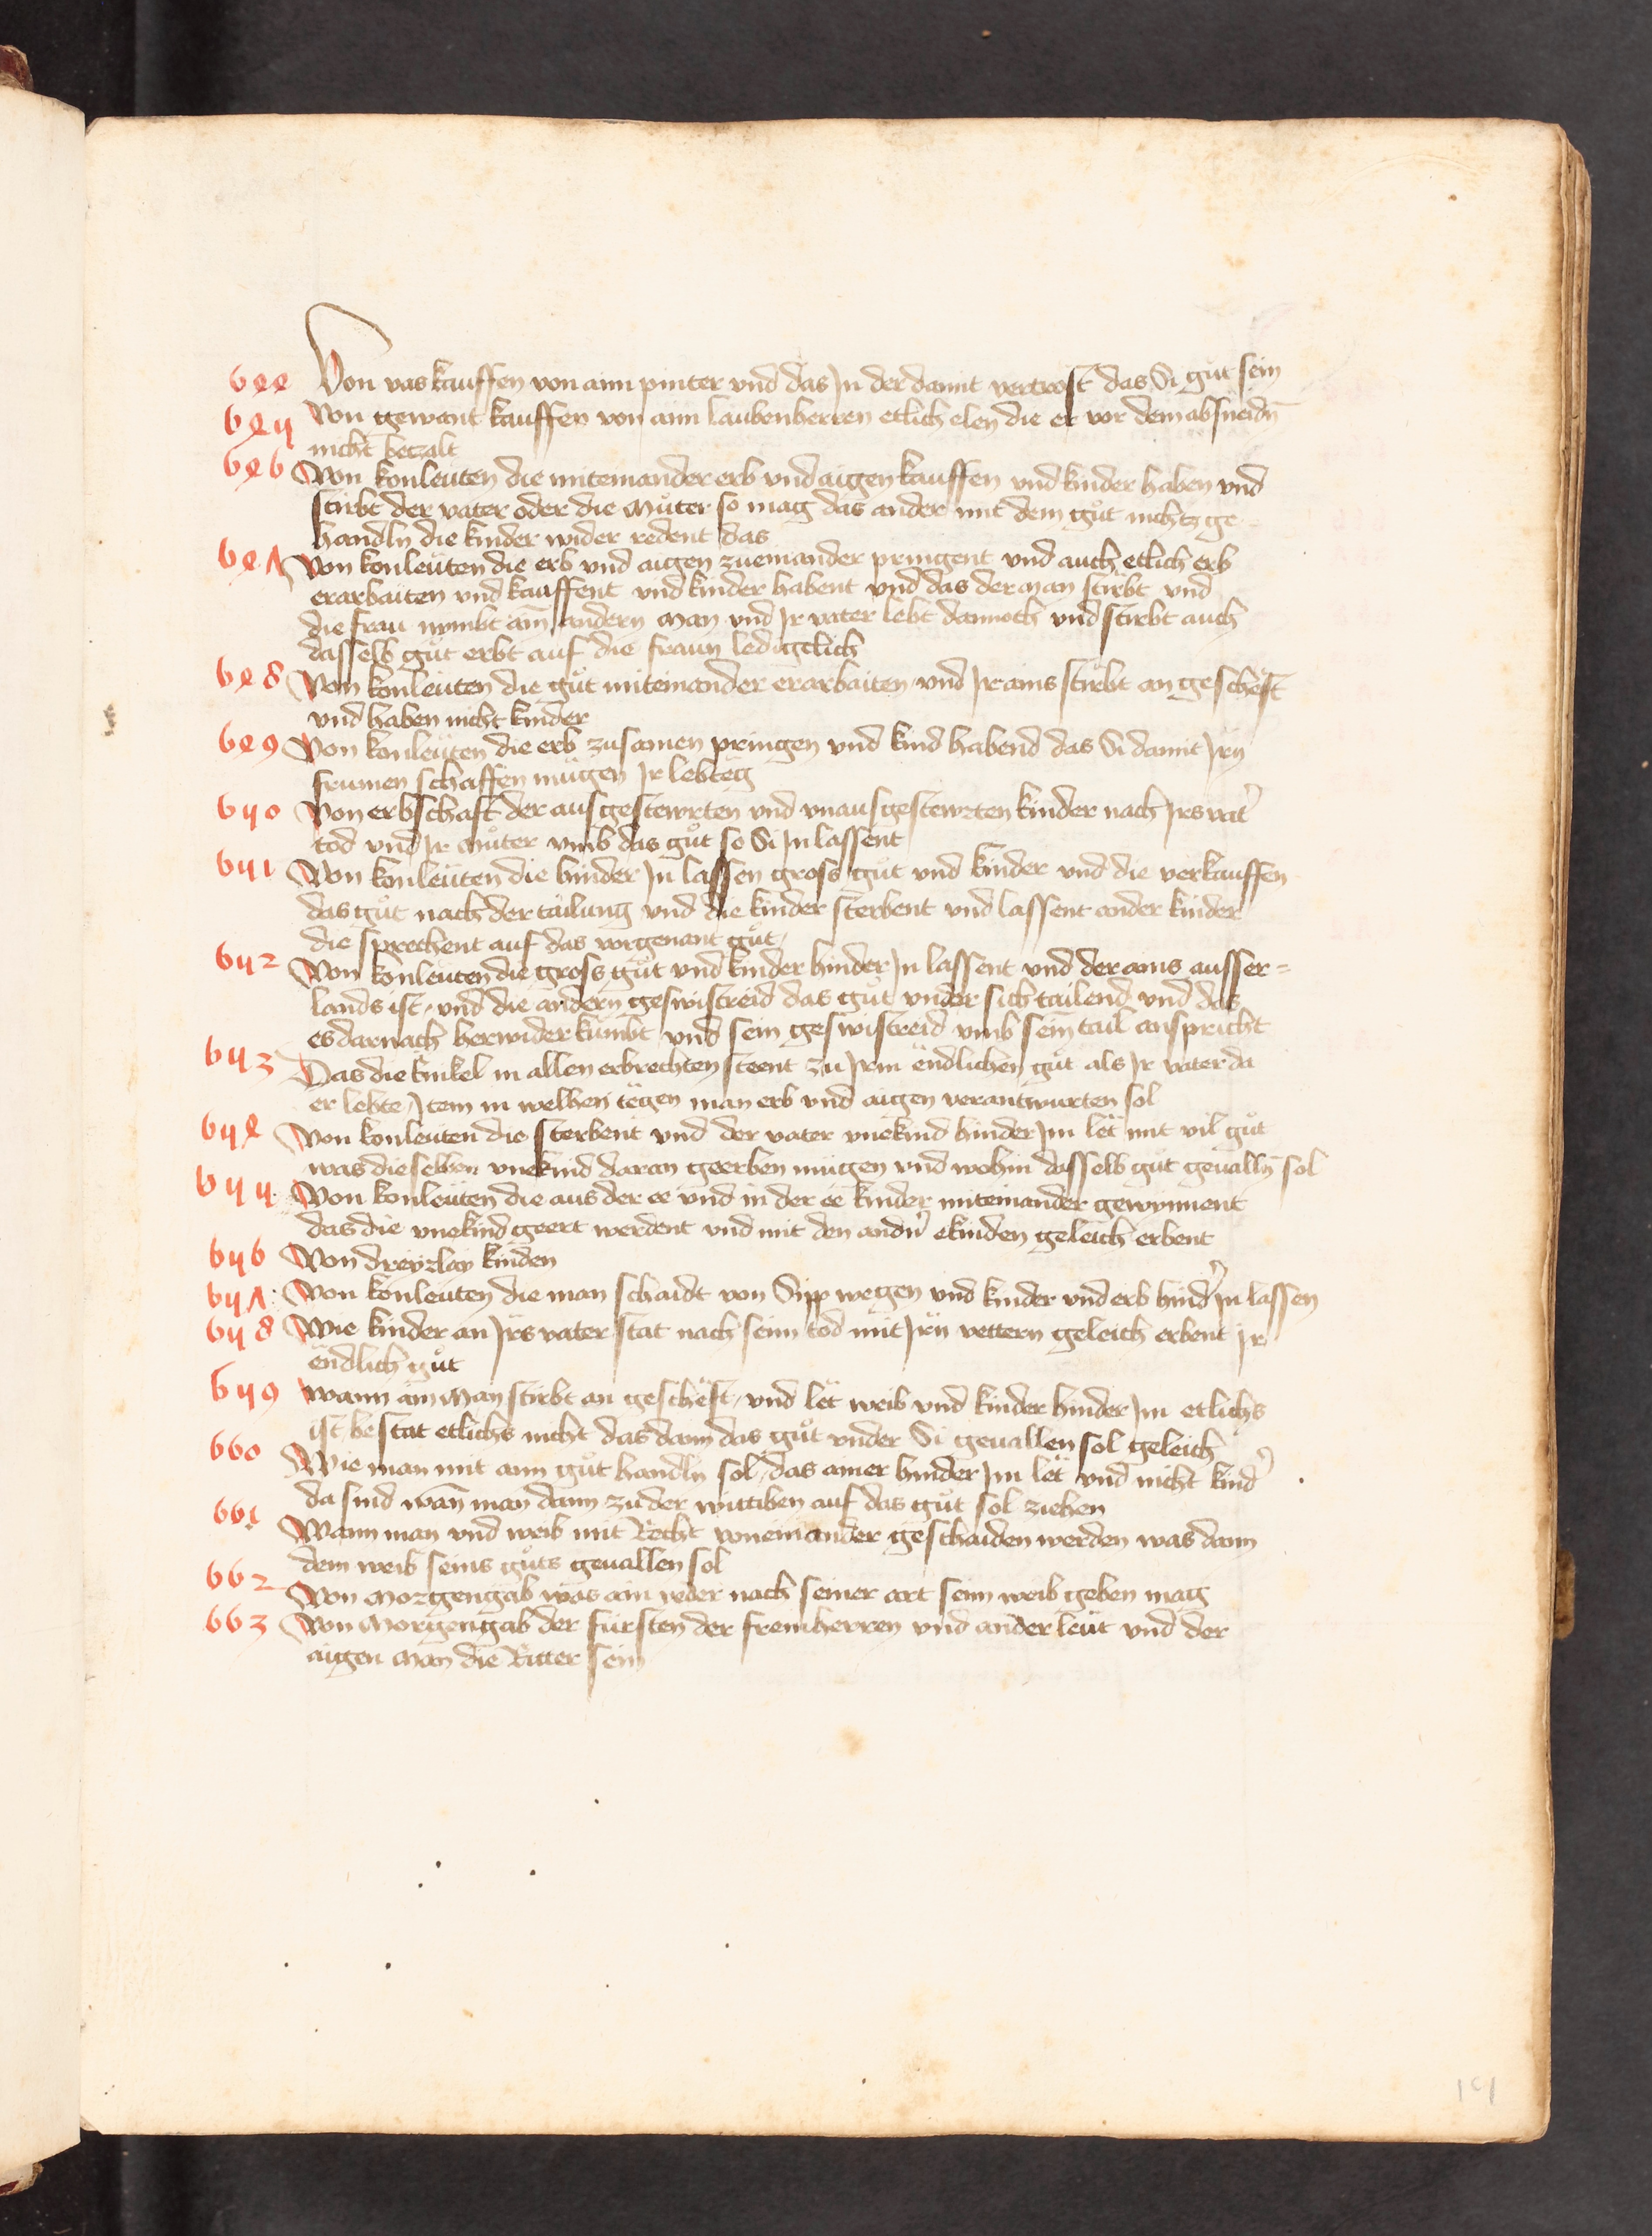 644 Von vas kauffen von aim pinter vnd das In der damit vertrost das Si gůt sein
645 Von gewant kauffen von aim laubenherren etlich elen die er vor dem absneidn̄
nicht betzalt
646 Von konleuten die miteinander erb vnd aigen kauffen vnd kinder haben vnd
stirbt der vater oder die můter so mag das ander mit dem gůt nichtz ge
handln die kinder wider redent das
647 Von konleuten die erb vnd aigen zueinander pringent vnd auch etlich erb
erarbaiten vnd kauffent vnd kinder habent vnd das der man stirbt vnd
die frau nymbt ain̄ andern man vnd Ir vater lebt dannoch vnd stirbt auch
dasselb gůt erbt auf die fraun ledigclich
648 Von konleuten die gůt miteinander erarbaiten vnd Ir ains stirbt an geschëft
vnd haben nicht kinder
649 Von konleuten die erb zusamen pringen vnd kind habend das Si damit Irn
frumen schaffen mügen Ir lebteg
650 Von erbschaft der ausgestewrten vnd vnausgestewrten kinder nach Irs vat̉
tod vnd Ir můter vmb das gůt so Si In lassent
651 Von konleuten die hinder In lassen gross gůt vnd kinder vnd die verkauffen
das gůt nach der tailung vnd die kinder sterbent vnd lassent ander kinder
die sprechent auf das vorgenant gůt
652 Von konleuten die gross gůt vnd kinder hinder In lassent vnd der ains ausser=
lands ist, vnd die andern geswistreid das gůt vnder sich tailend vnd das
es darnach herwider kumbt vnd sein geswistreid vmb sein tail anspricht
653 Das die Enikel in allen erbrechten steent zu Irm ëndlichen gůt als Ir vater da
er lebte, Item in welhen tëgen man erb vnd aigen verantwurten sol
654 Von konleuten die sterbent vnd der vater vnekind hinder Im lët mit vil gůt
was dieselben vnekind daran geerben mügen vnd wohin dasselb gůt geualln̄ sol
655 Von konleuten die aus der ee vnd in der ee kinder miteinander gewynnent
das die vnekind geert werdent vnd mit den andn̉ ekinden geleich erbent
656 Von dreyrlay kinden
657 Von konleuten die man schaidt von Sipp wegen vnd kinder vnd erb hind̉ In lassen
658 Wie kinder an Irs vater stat nach seim tod mit Irn vettern geleich erbent Ir
ëndlich gůt
659 Wann ain man stirbt an geschëft, vnd lët weib vnd kinder hinder Im etlichs
ist bestat etlichs nicht das dann das gůt vnder Si geuallen sol geleich
660 Wie man mit aim gůt handln sol, das ainer hinder Im lët vnd nicht kind̉
da sind wan̄ man dann zu der wittiben auf das gůt sol ziehen
661 Wann man vnd weib mit Recht voneinander geschaiden werden was dann
dem weib seins gůts geuallen sol
662 Von Morgengab was ain yeder nach seiner art seim weib geben mag
663 Von Morgengab der fürsten der freinherren vnd ander leut vnd der
aigen man die Ritter sein